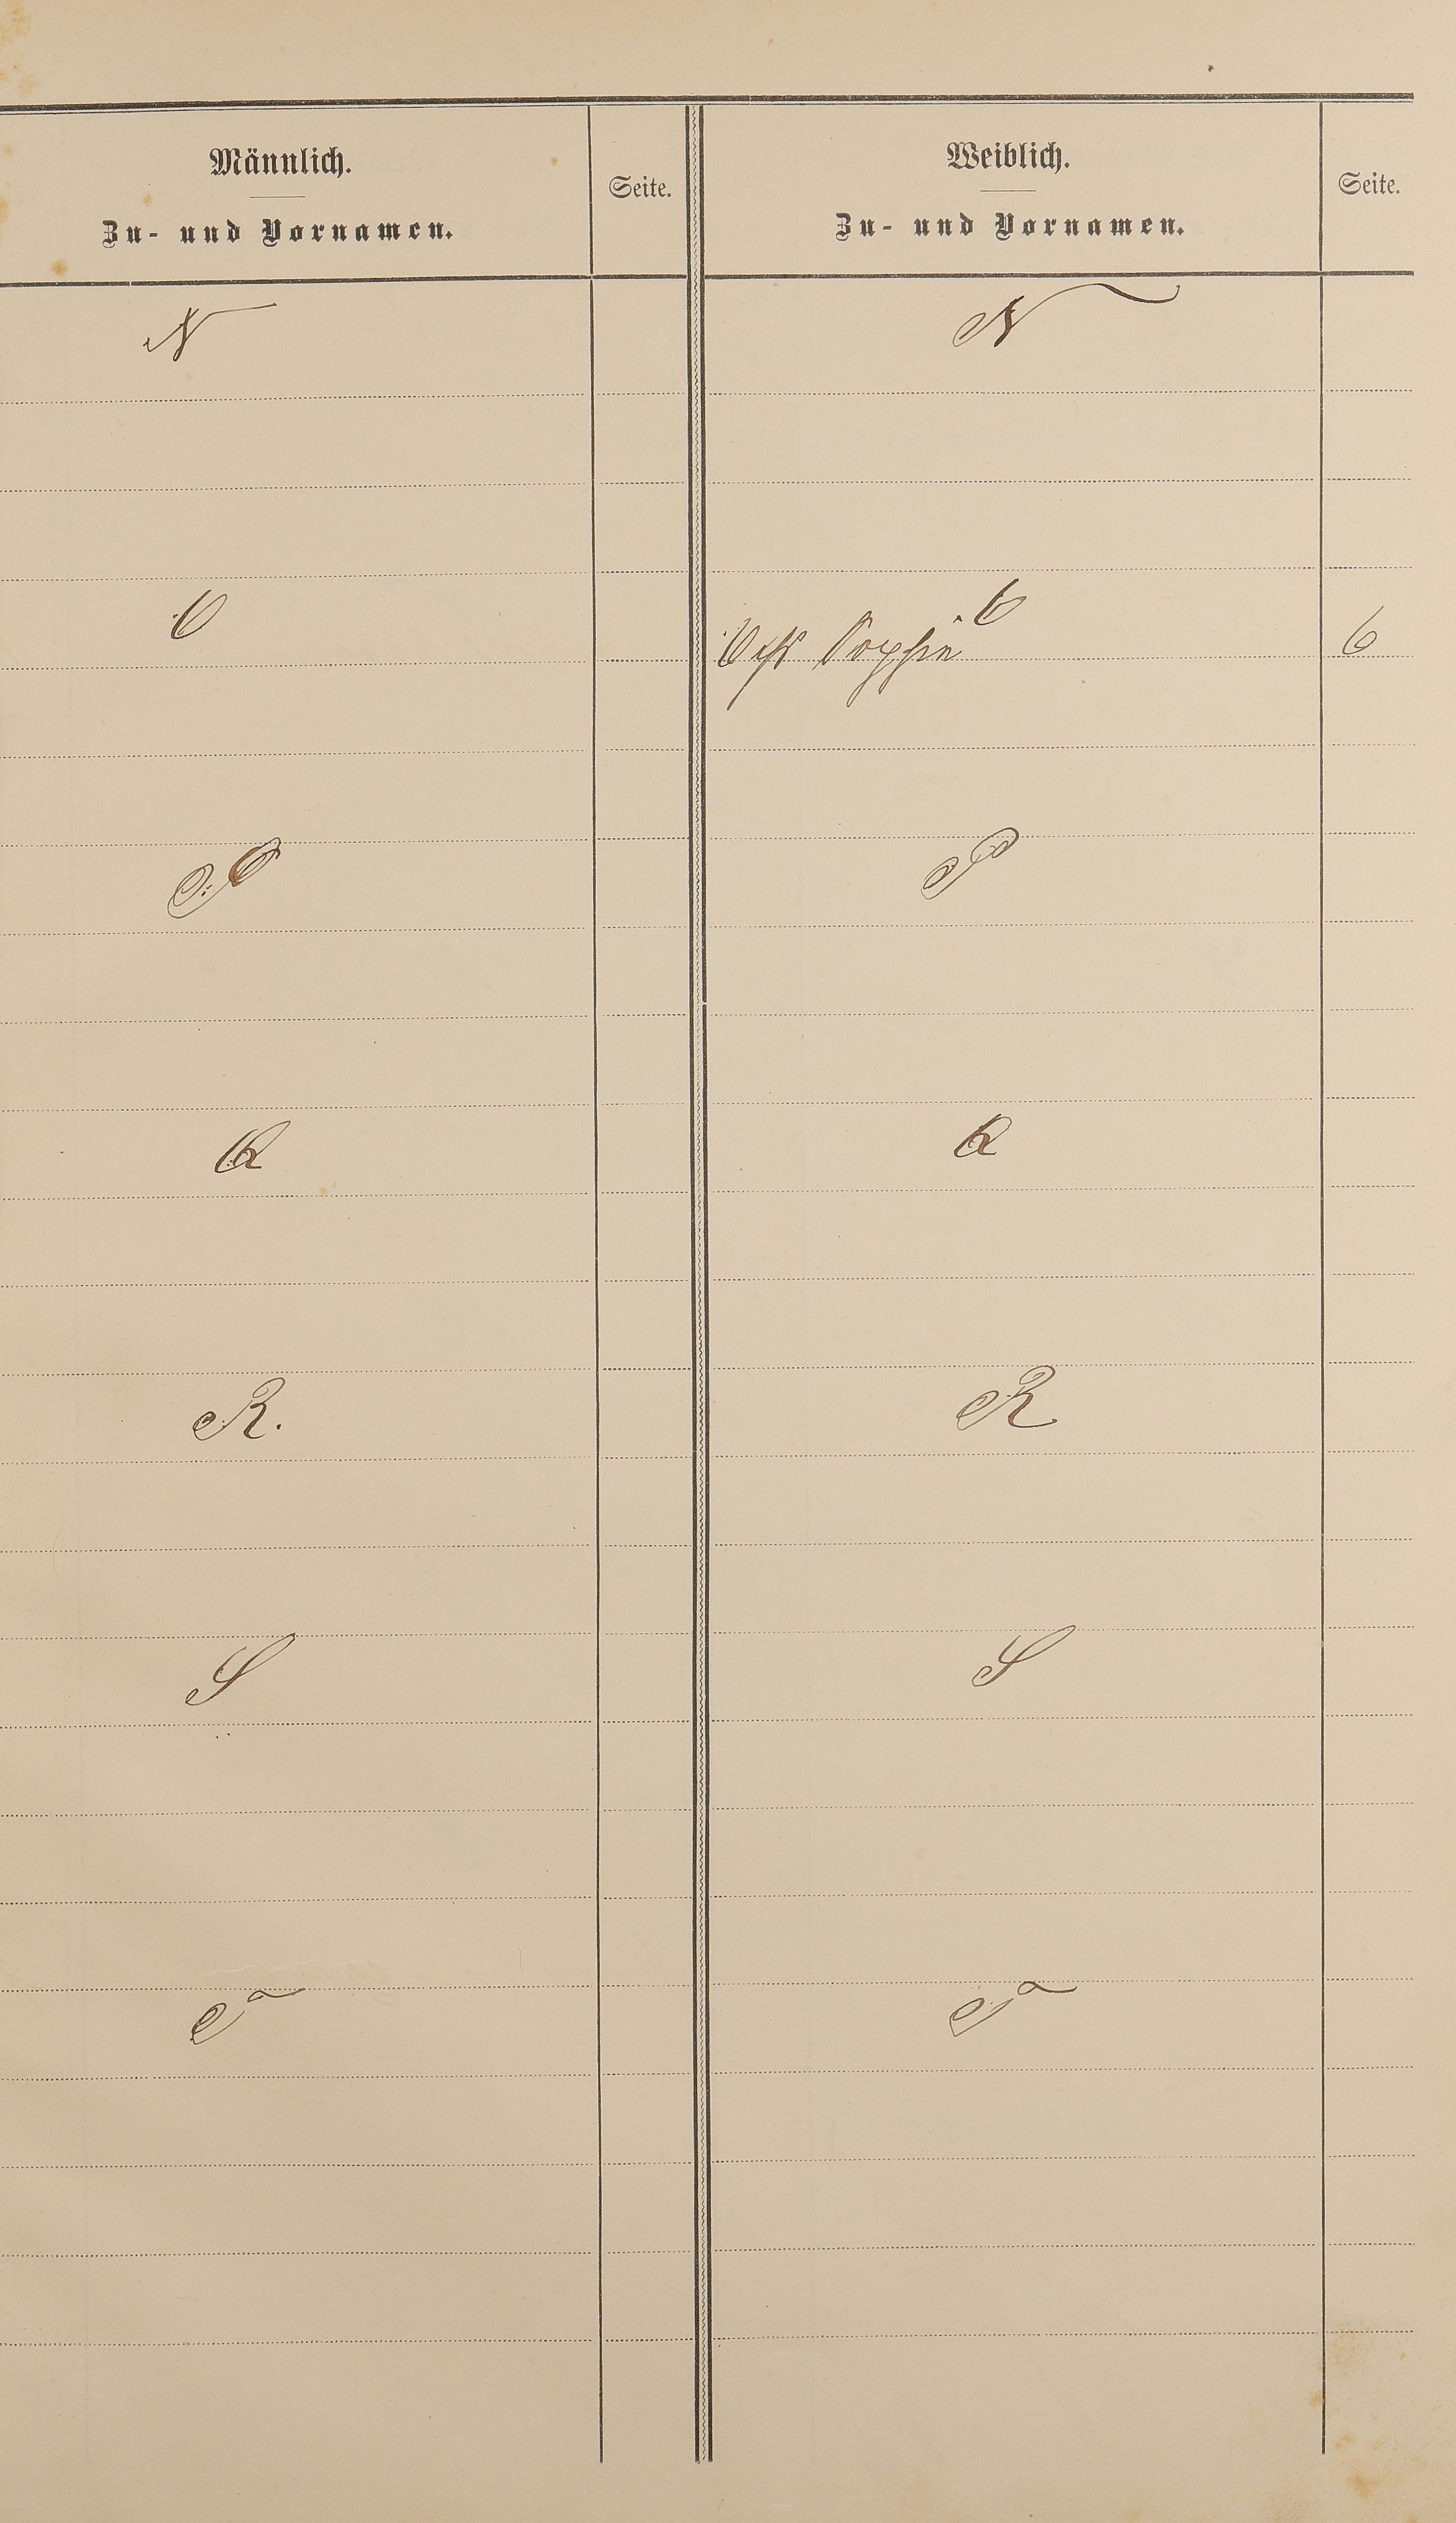 Männlich.
Zu- und Vornamen.
Seite.
Weiblich.
Zu- und Vornamen.
Seite.
N
N
O
O
Sophie
6
P
P
Q
Q
R.
R
S
S
T
T